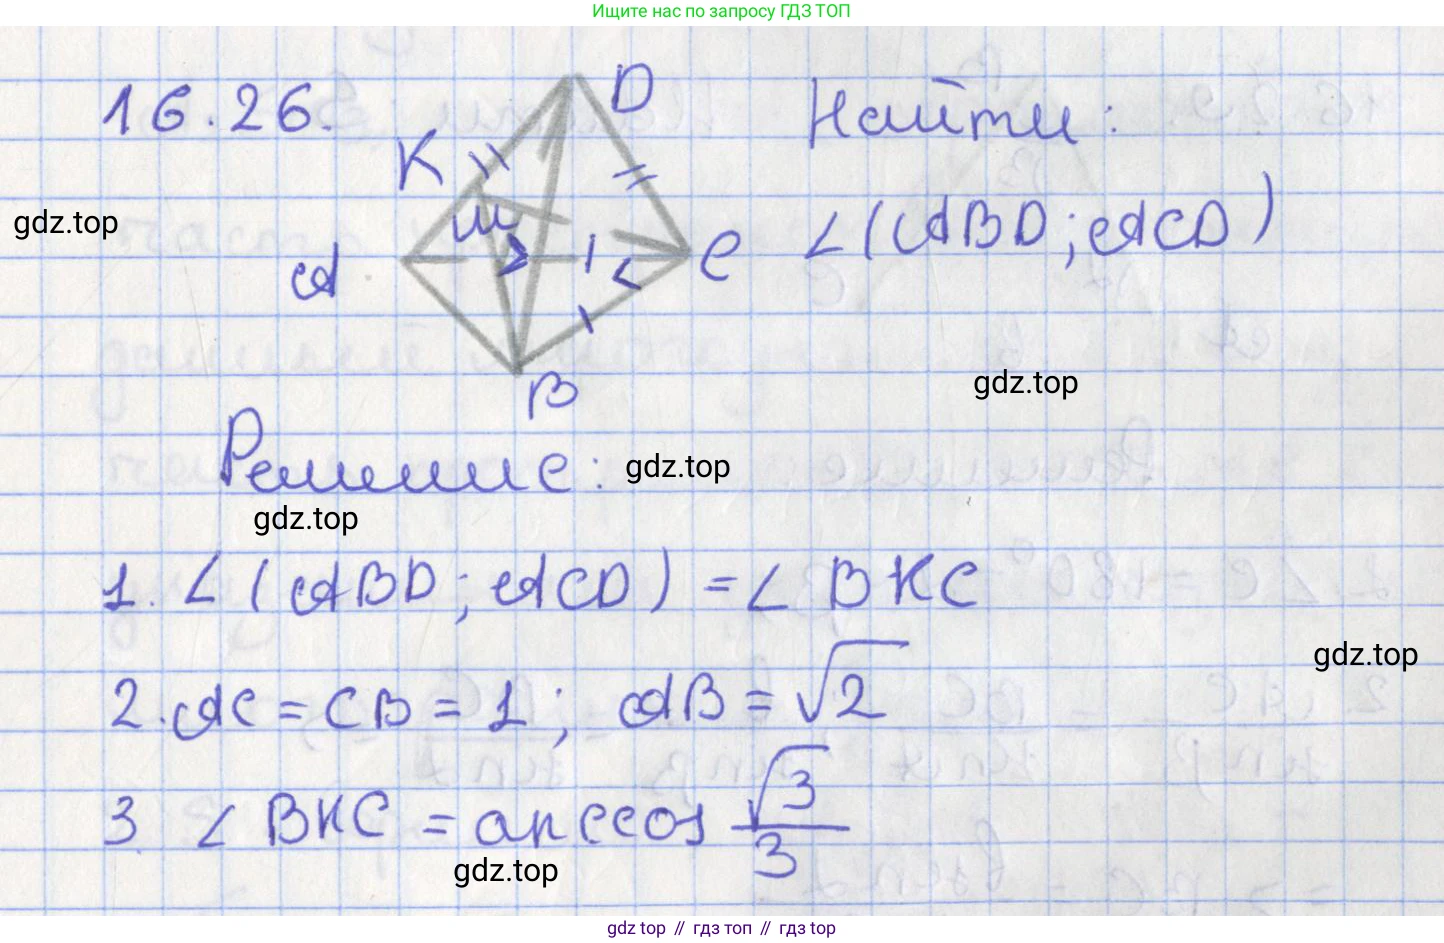 Ищите нас по запросу ГДЗ ТОП
16.26.
D
Найти:
K
gdz.top
∠(ABD; ACD)
A
C
gdz.top
B
Решение:
gdz.top
gdz.top
1. ∠(ABD; ACD) = ∠BKC
gdz.top
2. AC = CB = 1; AB = √2
3. ∠BKC = arccos √3/3
gdz.top
gdz top // гдз топ // гдз top